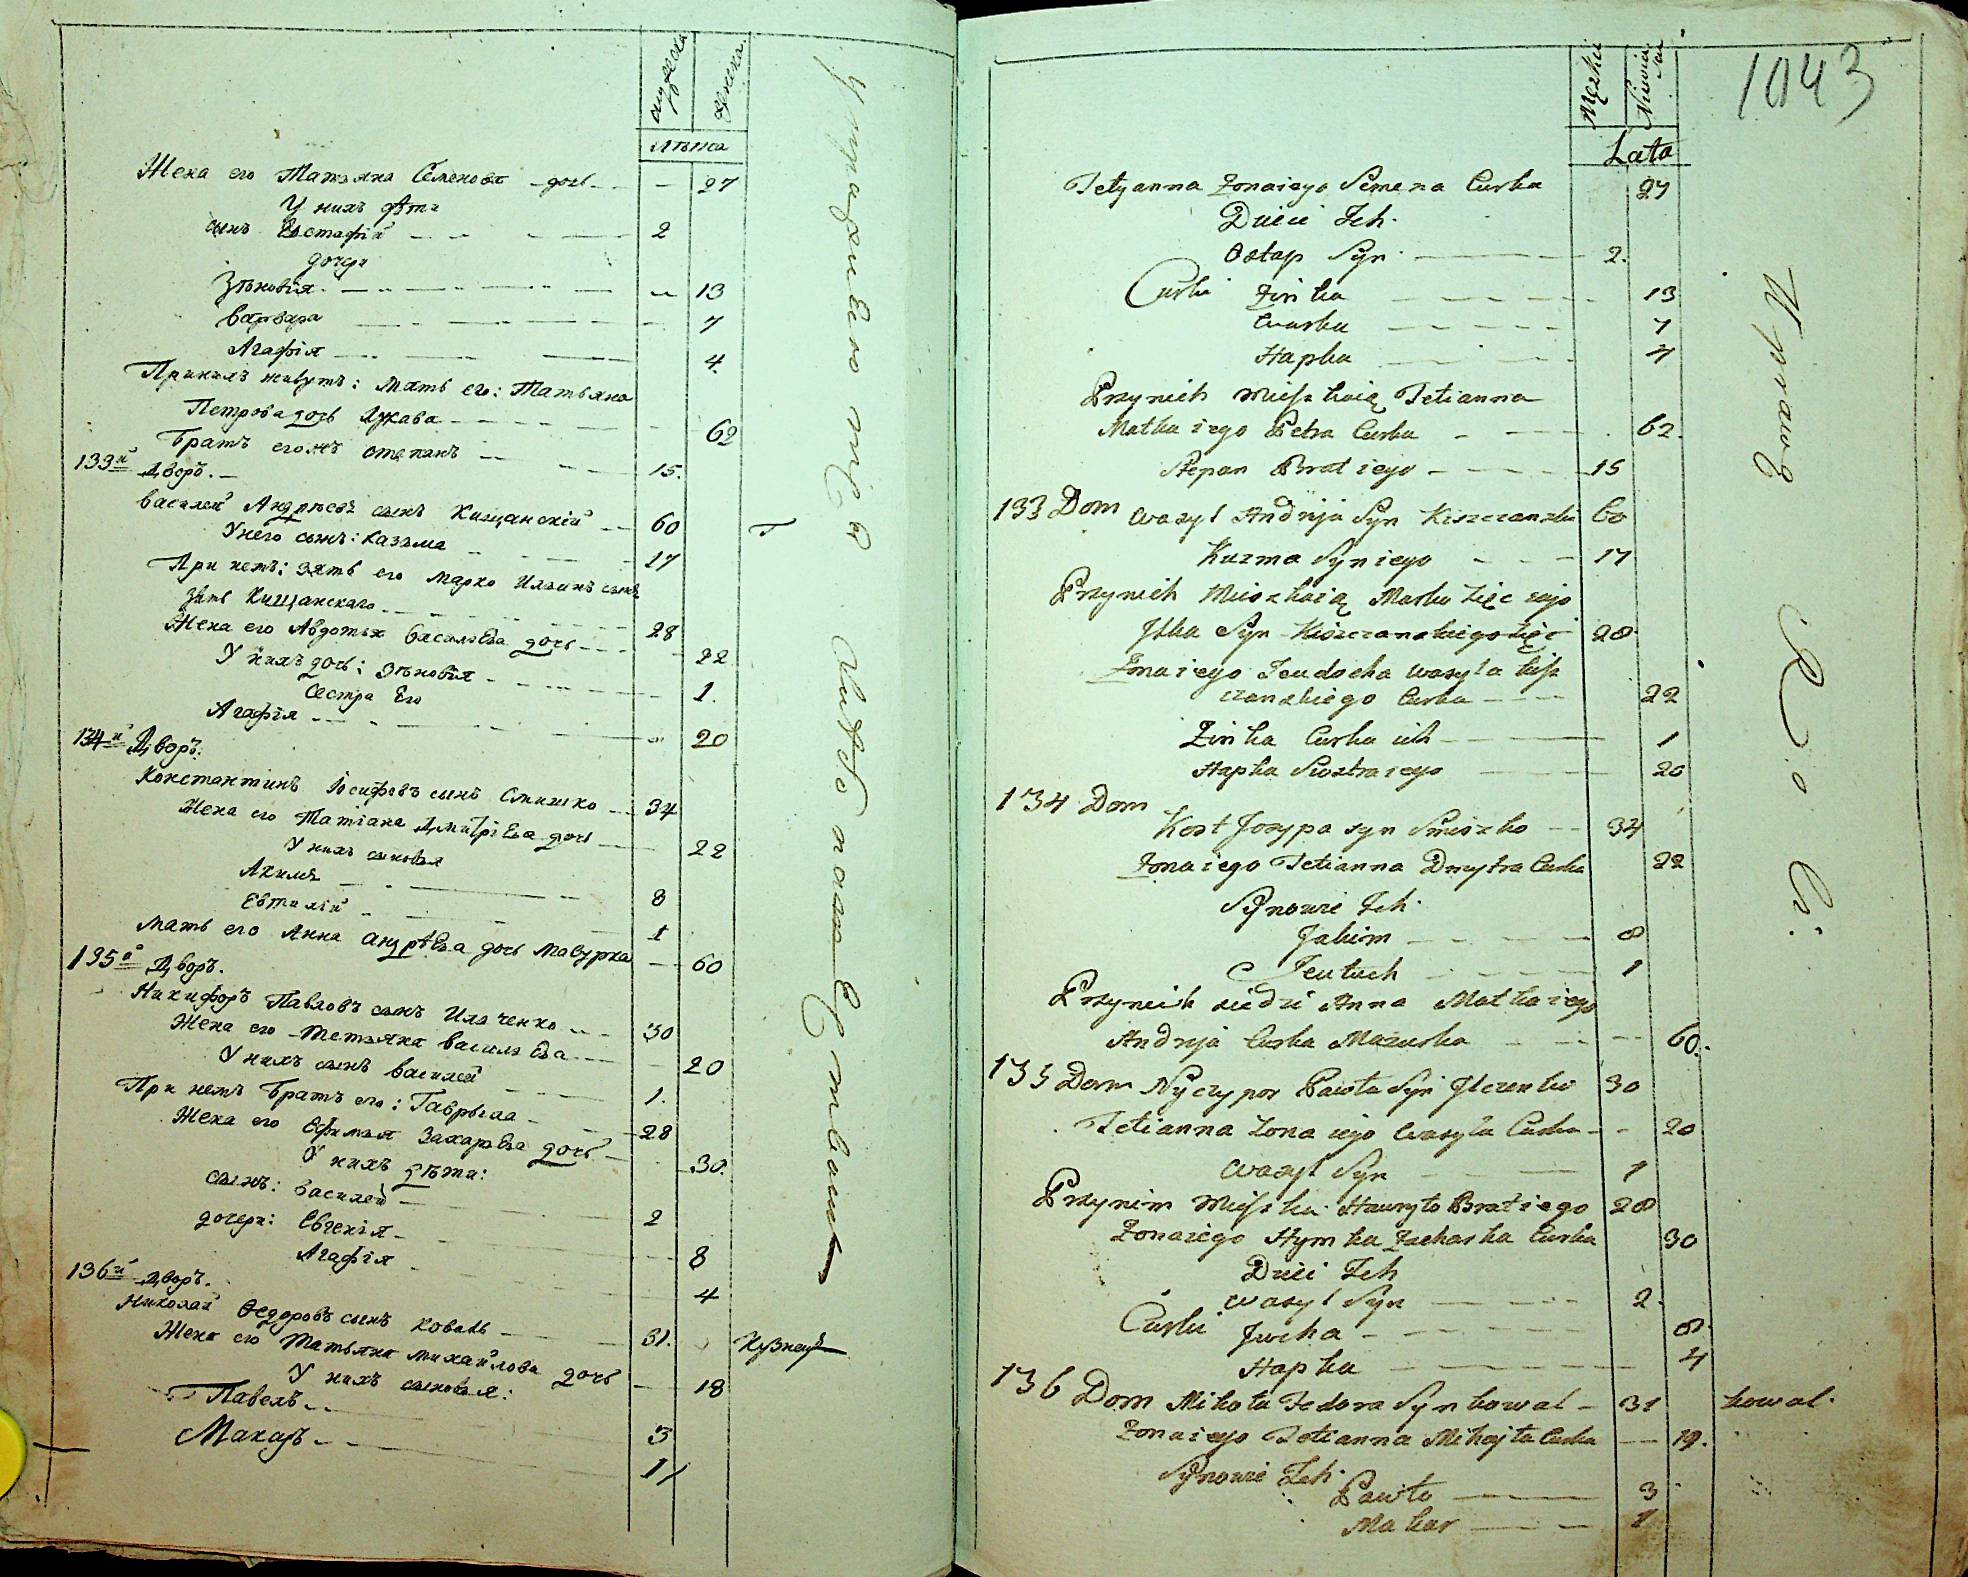 мужеска
женска
лѣта
Жена его Татьяна Семенова дочь 27
У нихъ дѣти
сынъ Евстафій 2
дочери
Зѣновія 13
Варвара 7
Агафія 4
При нихъ живутъ: мать его: Татьяна
Петрова дочь 62
Братъ егожъ Степанъ 15.
133й Дворъ.
Василей Андреевъ сынъ Кищанскій 60
У него сынъ: Казьма 17
При немъ: зять его Марко Ильинъ сынъ
зять Кищанскаго 28
Жена его Авдотья Васильева дочь 22
У нихъ дочь: Зѣновія 1.
Сестра Его
Агафія 20
134й Дворъ.
Константинъ Іосифовъ сынъ Смишко 34
Жена его Татіана Дмитріева дочь 22
У нихъ сыновья
Акимъ 8
Евтихій 1
Мать его Анна Андрѣева дочь Мазурка 60
135й Дворъ.
Никифоръ Павловъ сынъ Ильченко 30
Жена его Татьяна Васильева 20
У нихъ сынъ Василей 1.
При немъ братъ его: Гаврыла 28
Жена его Ефимья Захарьева дочь 30.
У нихъ дѣти:
сынъ: Василей 2
дочери: Евгенія 8
Агафія 4
136й Дворъ.
Николай Федоровъ сынъ Коваль 31. Кузнецъ
Жена его Татьяна Михайлова дочь 18
У нихъ сыновья:
Павелъ 3
Макаръ 1
1043
Męzkie
Lata
Tetyanna Zonaiego Semena Curka 27
Dzieci Ich.
Ostap Syn 2.
Curki Zinka 13
Warka 7
Hapka 4
Przynich Mieszkaią Tetianna
Matka iego Petra Curka 62.
Stepan Brat iego 15
133 Dom Wasyl Andrija Syn Kiszczanski 60
Kuzma Syn iego 17
Przynich Mieszkaią Marko Zięc iego
Ilka Syn Kiszczanskiego Zięć 28
Zona iego Jewdocha Wasyla Kisz
czanskiego Curka 22
Zinka Curka ich 1
Hapka Siostra iego 20
134 Dom
Kost Josypa syn Smiszko 34
Zona iego Tetianna Dmytra Curka 22
Synowie Ich.
Jakim 8
Jewtuch 1
Przynich siedzi Anna Matka iego
Andrija Curka Mazurka 60.
135 Dom Nyczypor Pawła Syn Ilczenko 30
Tetianna Zona iego Wasyla Curka 20
Wasyl Syn 1
Przynim Mieszka Hawryło Brat iego 28
Zona iego Hymka Zacharka Curka 30
Dzieci Ich
Wasyl Syn 2.
Curki Jwcha 8.
Hapka 4
136 Dom Mikoła Fedora Syn Kowal 31 kowal.
Zona iego Tetianna Mihajła Curka 19.
Synowie Ich.
Pawło 3
Makar 1